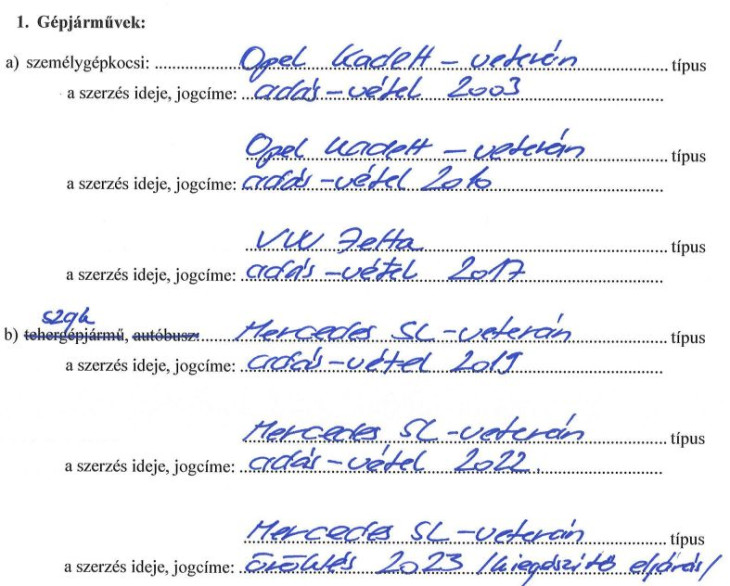 1. Gépjárművek:
a) személygépkocsi: Opel Kadett - veterán típus
a szerzés ideje, jogcíme: adás-vétel 2003
Opel Kadett - veterán típus
a szerzés ideje, jogcíme: adás-vétel 2010
VW Jetta típus
a szerzés ideje, jogcíme: adás-vétel 2017
szgk
b) tehergépjármű, autóbusz: Mercedes SL-veterán típus
a szerzés ideje, jogcíme: adás-vétel 2019
Mercedes SL-veterán típus
a szerzés ideje, jogcíme: adás-vétel 2022.
Mercedes SL-veterán típus
a szerzés ideje, jogcíme: öröklés 2023 /kiegészítő eljárás/